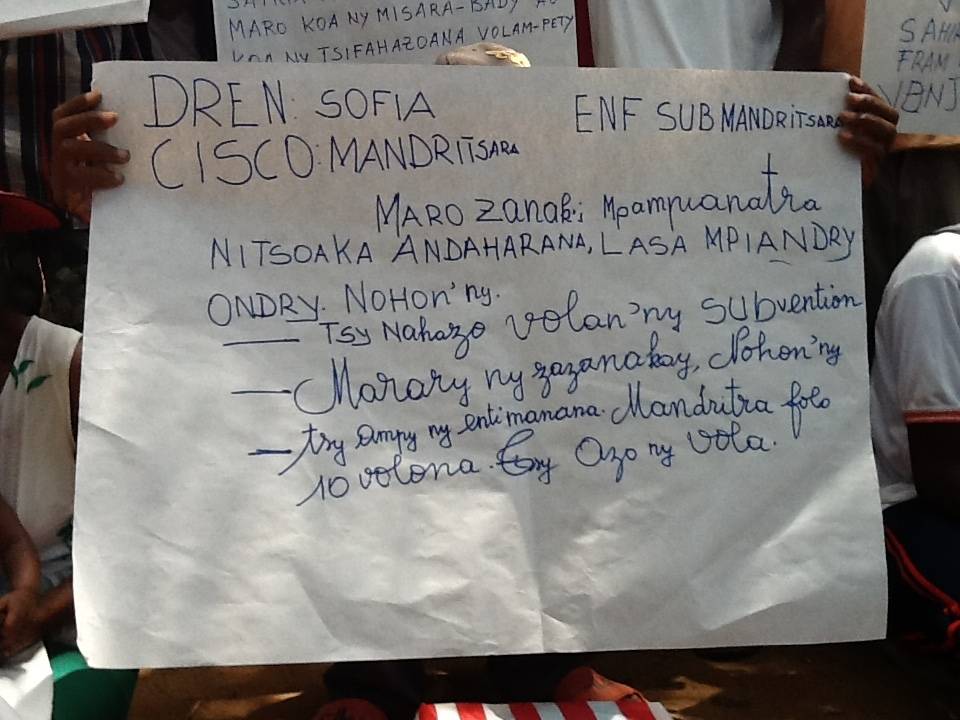 MARO KOA NY MISARA-BADY
KOA NY TSIFAHAZOANA VOLAM-PETY
SAHI
FRAM
VBNJ
DREN: SOFIA
ENF SUB MANDRITSARA
CISCO: MANDRITSARA
MARO zanak; Mpampianatra
NITSOAKA ANDAHARANA, LASA MPIANDRY
ONDRY. NOHON'ny.
— TSY NaHazo volan'ny SUBvention
— Marary ny zazanakay, Nohon'ny
— tsy ampy ny entimanana. Mandritra folo
10 volona. Tsy Azo ny vola.